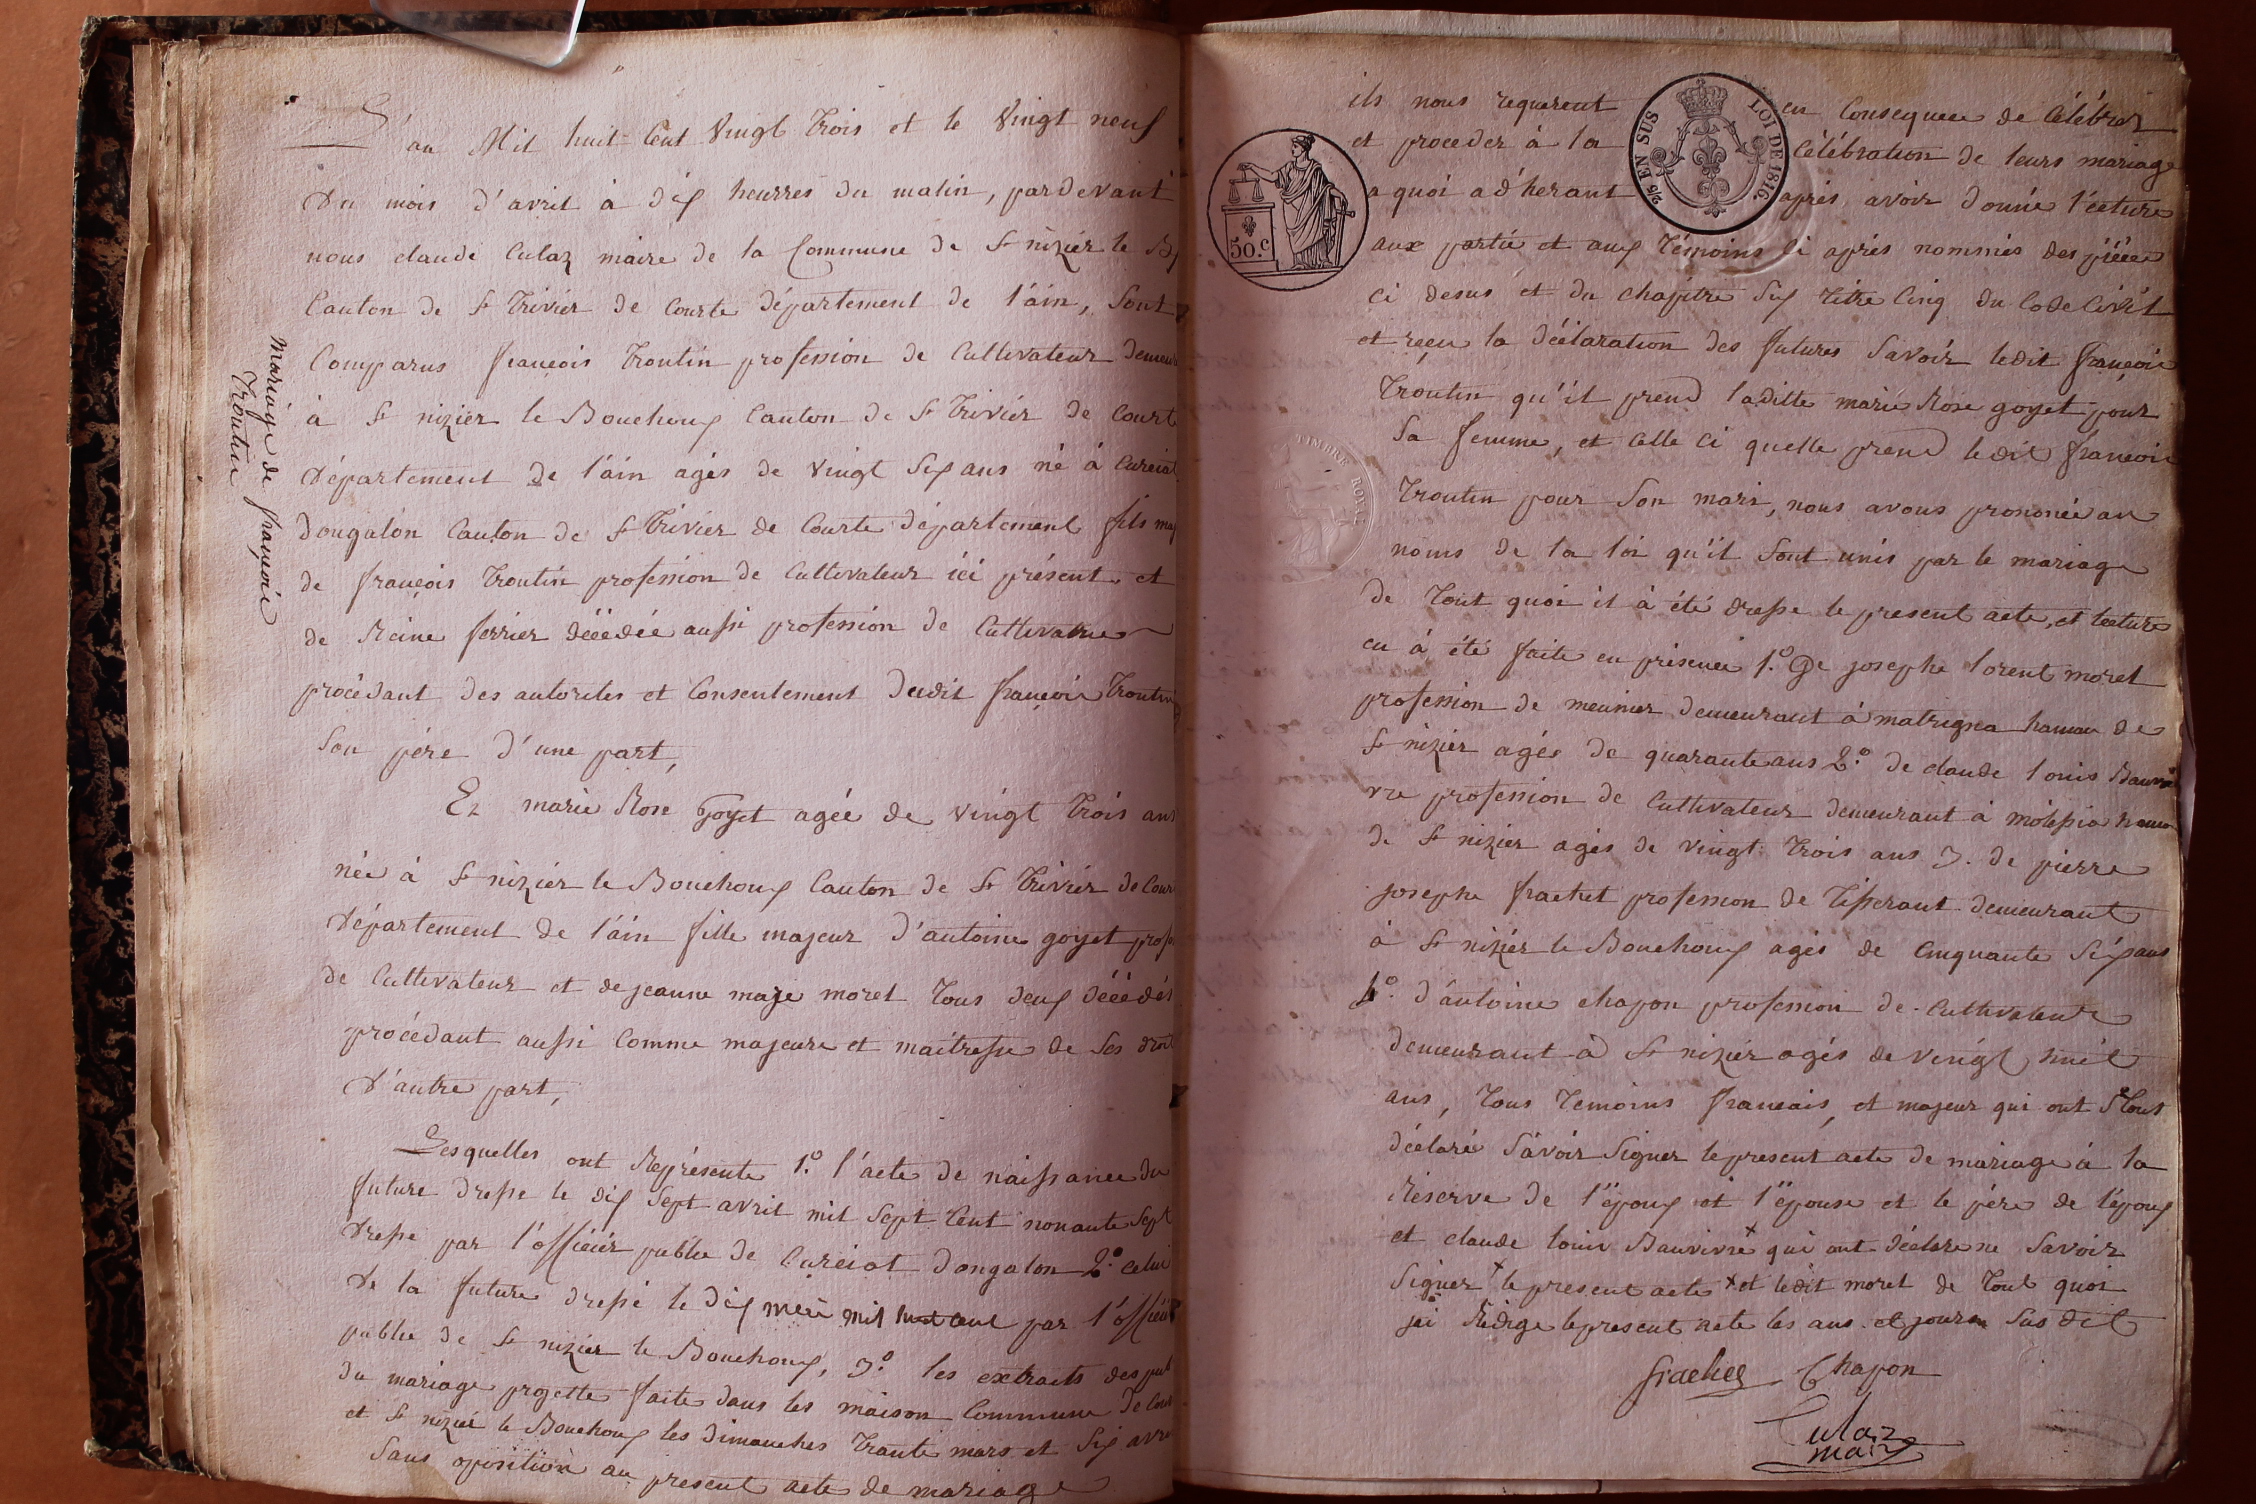 L'an Mil huit Cent Vingt trois et le Vingt neuf
du mois d'avril à dix heurres du matin, pardevant
nous claude Culaz maire de la Commune de St nizier le B
Canton de St Trivier de Courte département de l'ain, Sont
Comparus françois Troutin profession de Cultivateur demeur
à St nizier le Bouchoux Canton de St Trivier de Court
département de l'ain agés de Vingt Six ans né à Curciat
Dongalon Canton de St Trivier de Courte département fils maj
de françois Troutin profession de Cultivateur ici présent et
de Reine ferrier décédée aussi profession de Cultivatrice
procédant des autorites et Consentement dudit françois Troutin
Son père d'une part,
Et marie Rose goyet agée de Vingt trois ans
née à St nizier le Bouchoux Canton de St Trivier de Cour
département de l'ain fille majeur d'antoine goyet profe
de Cultivateur et de jeanne marje moret Tous deux décédés
procédant aussi Comme majeure et maitresse de Ses droit
d'autre part,
Lesquelles ont Représente 1.º l'acte de naissance du
future dresse le dix Sept avril mil Sept Cent nonante Sept
dresse par l'officier public de Curciat Dongalon 2.º celui
de la future dressé le dix mil huit cent par l'officie
public de St nizier le Bouchoux, 3.º les extraits des pub
du mariage projette faite dans les maison Commune de Cour
et St nizier le Bouchoux les dimanches Trante mars et Six avri
Sans oposition au present acte de mariage
mariage de françois
Troutin
ils nous requerent en Consequence de Célébrer
et proceder à la Célébration de leurs mariage
a quoi ad'herant après avoir donné l'ecture
aux partie et aux Témoins Ci après nommés des pièces
ci desus et du chapitre Six titre Cinq du Code Civil
et reçu la déclaration des futures Savoir ledit françois
Troutin qu'il prend laditte marie Rose goyet pour
Sa femme, et Celle Ci quelle prend ledit françois
Troutin pour Son mari, nous avons prononcé au
noms de la loi qu'il Sont unis par le mariage
de Tout quoi il à été dresse le present acte, et lecture
en à été faite en présence 1.º De josephe lorent moret
profession de meunier demeurant à matrigna hamau de
St nizier agée de quarante ans 2.º de claude louis Bauvi
vre profession de Cultivateur demeurant à
de St nizier agés de vingt trois ans 3. de pierre
josephe frachet profession de Tisserant demeurant
à St nizier le Bouchoux agés de Cinquante Six ans
4º. d'antoine chapon profession de Cultivateur
demeurant à St nizier agés de vingt huit
ans, Tous Temoins francais, et majeur qui ont Tous
déclaré Savoir Signer le present acte de mariage à la
Réserve de l'époux et l'épouse et le père de l'époux
et claude louis Bauvivre x qui ont déclare ne Savoir
Signer x le present acte x et ledit moret de Tout quoi
jai Rédige le present acte les ans et jours Sus dit
frachet Chapon
Culaz
maire
50.C
2/5 EN SUS LOI DE 1816.
TIMBRE ROYAL